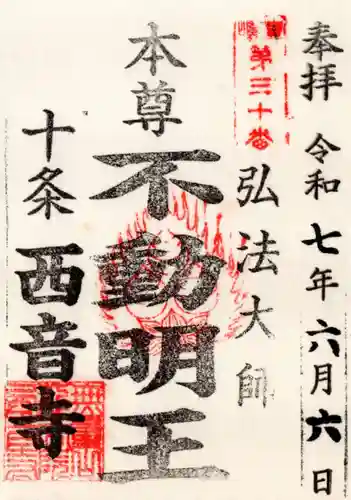 奉拝 令和七年六月六日
第三十番
弘法大師
本尊
不動明王
十条
西音寺